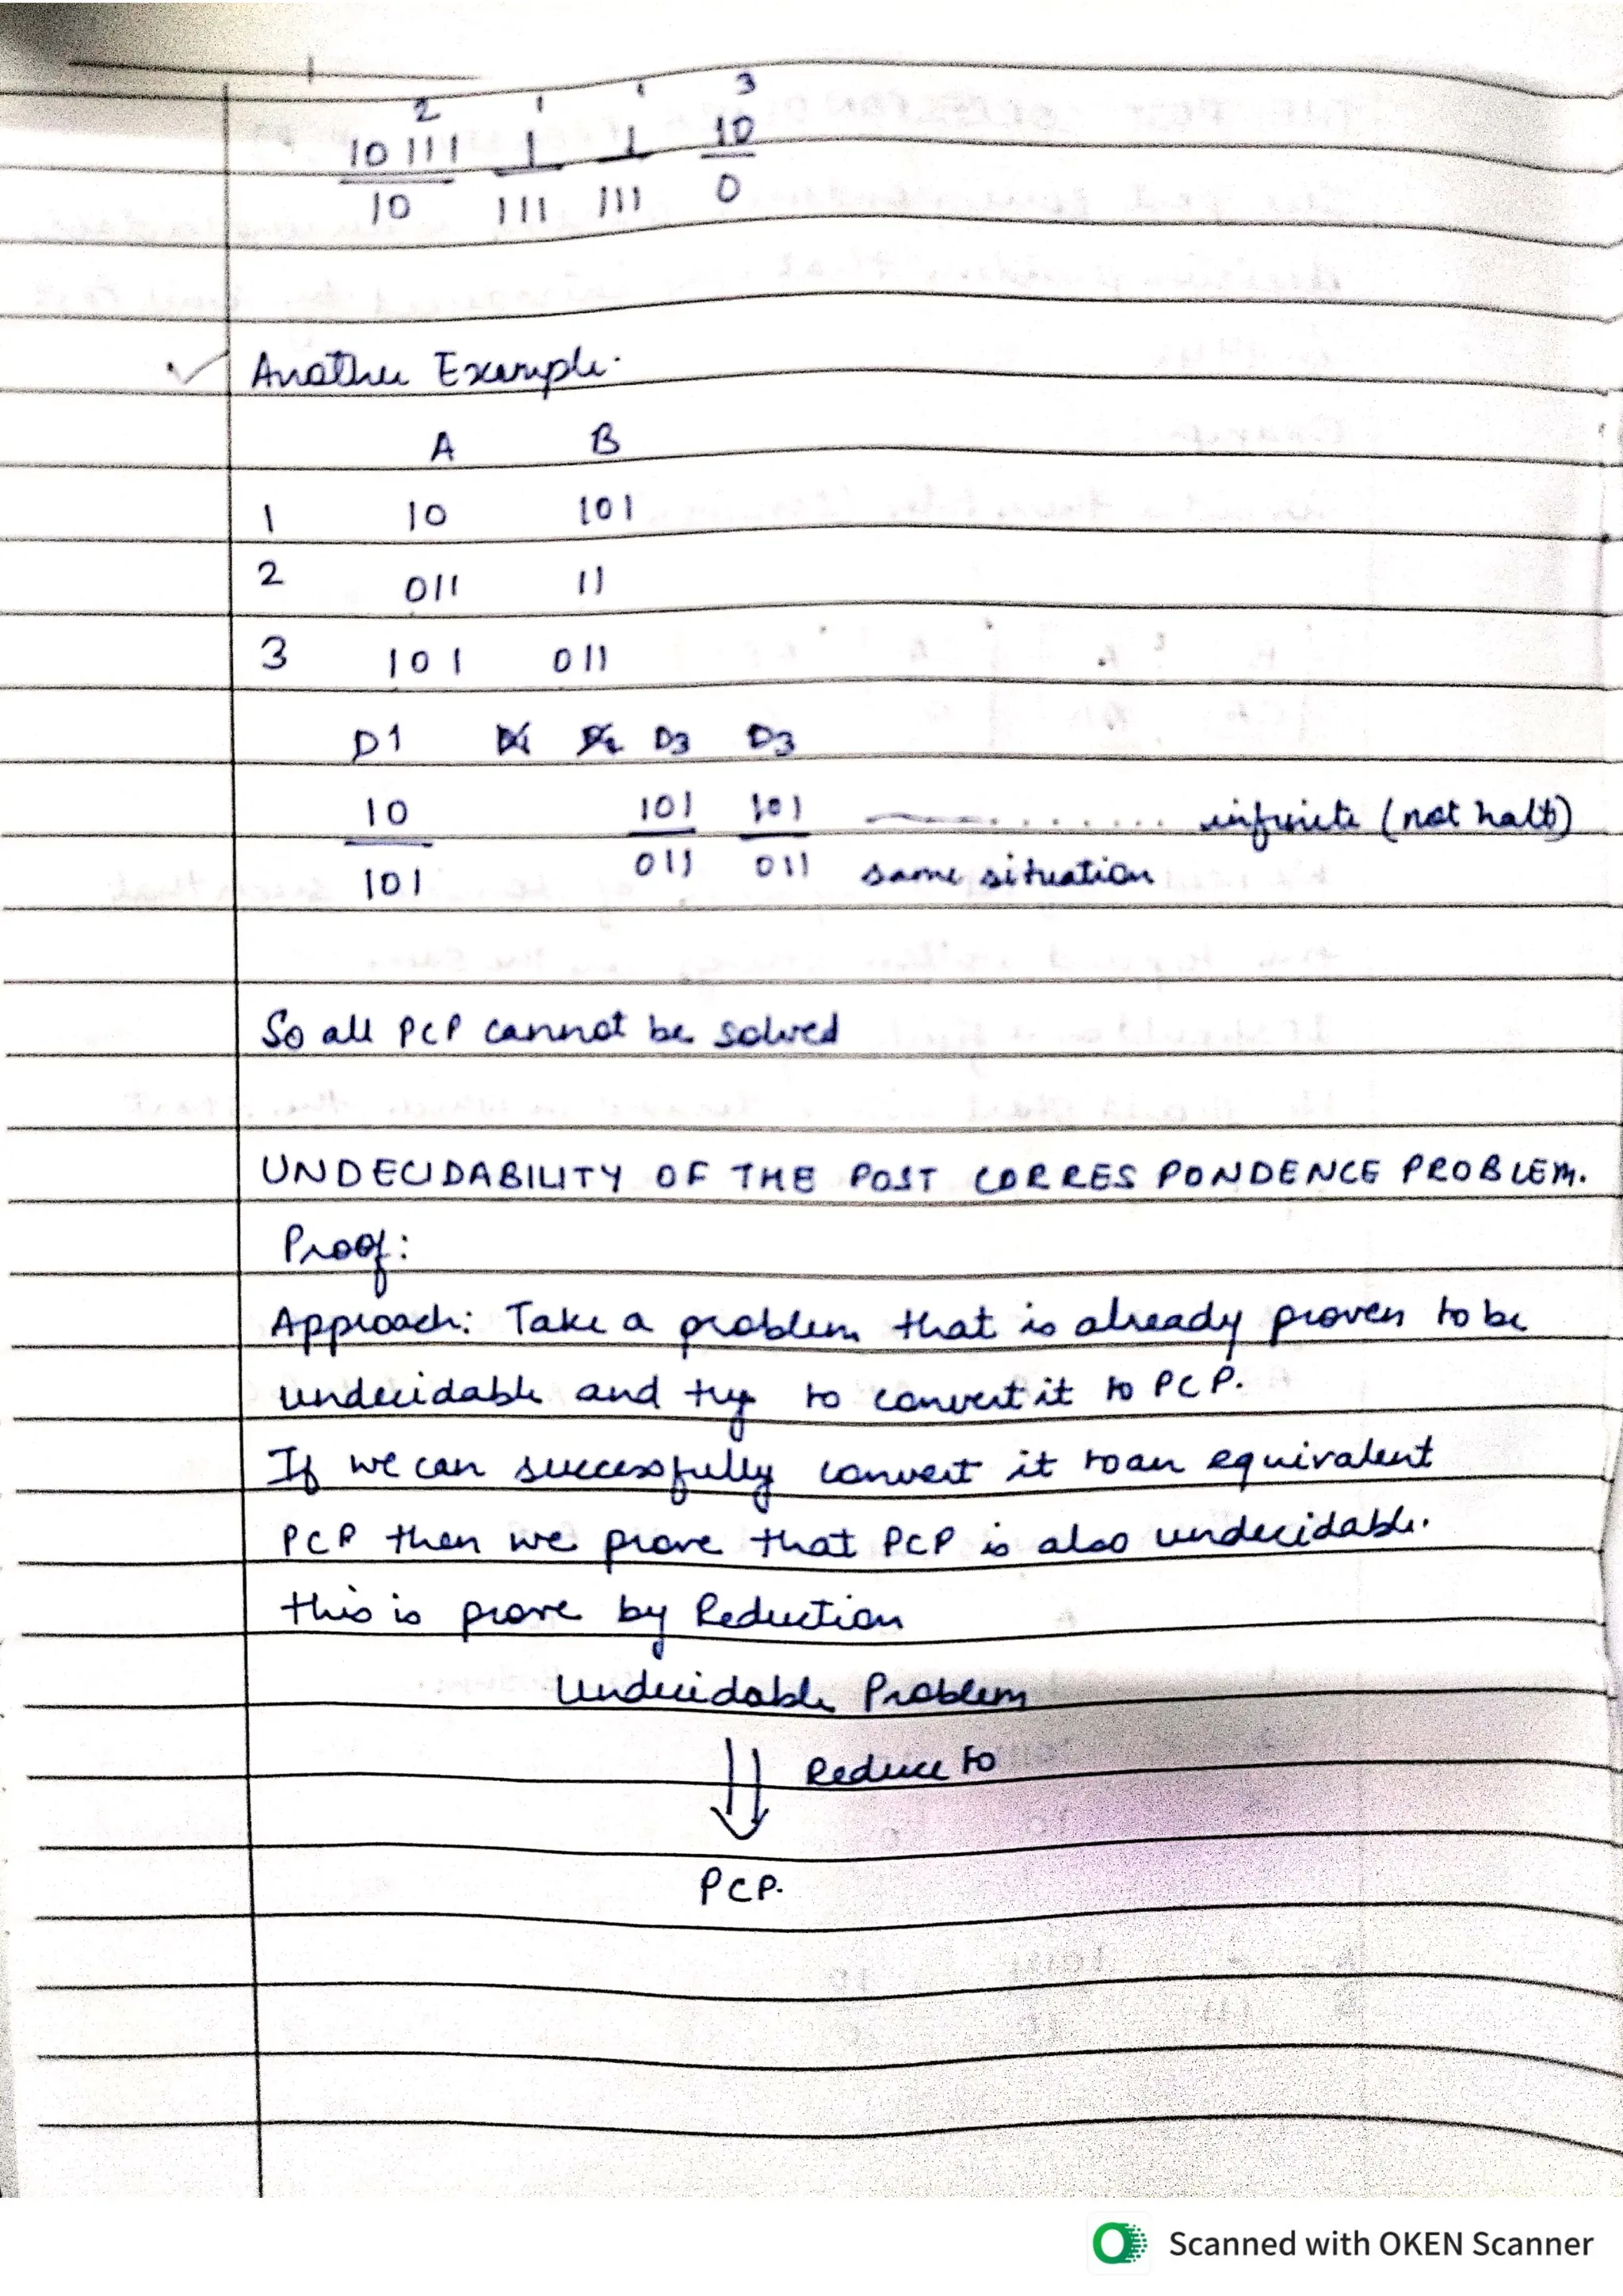 2 1 1 3
10 111 1 1 10
10 111 111 0
Another Example.
A B
1 10 101
2 011 11
3 101 011
D1 D3 D3
10 101 101 ........ infinite (not halt)
101 011 011 same situation
So all PCP cannot be solved
UNDECIDABILITY OF THE POST CORRESPONDENCE PROBLEM.
Proof:
Approach: Take a problem that is already proven to be
undecidable and try to convert it to PCP.
If we can successfully convert it to an equivalent
PCP then we prove that PCP is also undecidable.
this is prove by Reduction
Undecidable Problem
Reduce to
PCP.
Scanned with OKEN Scanner